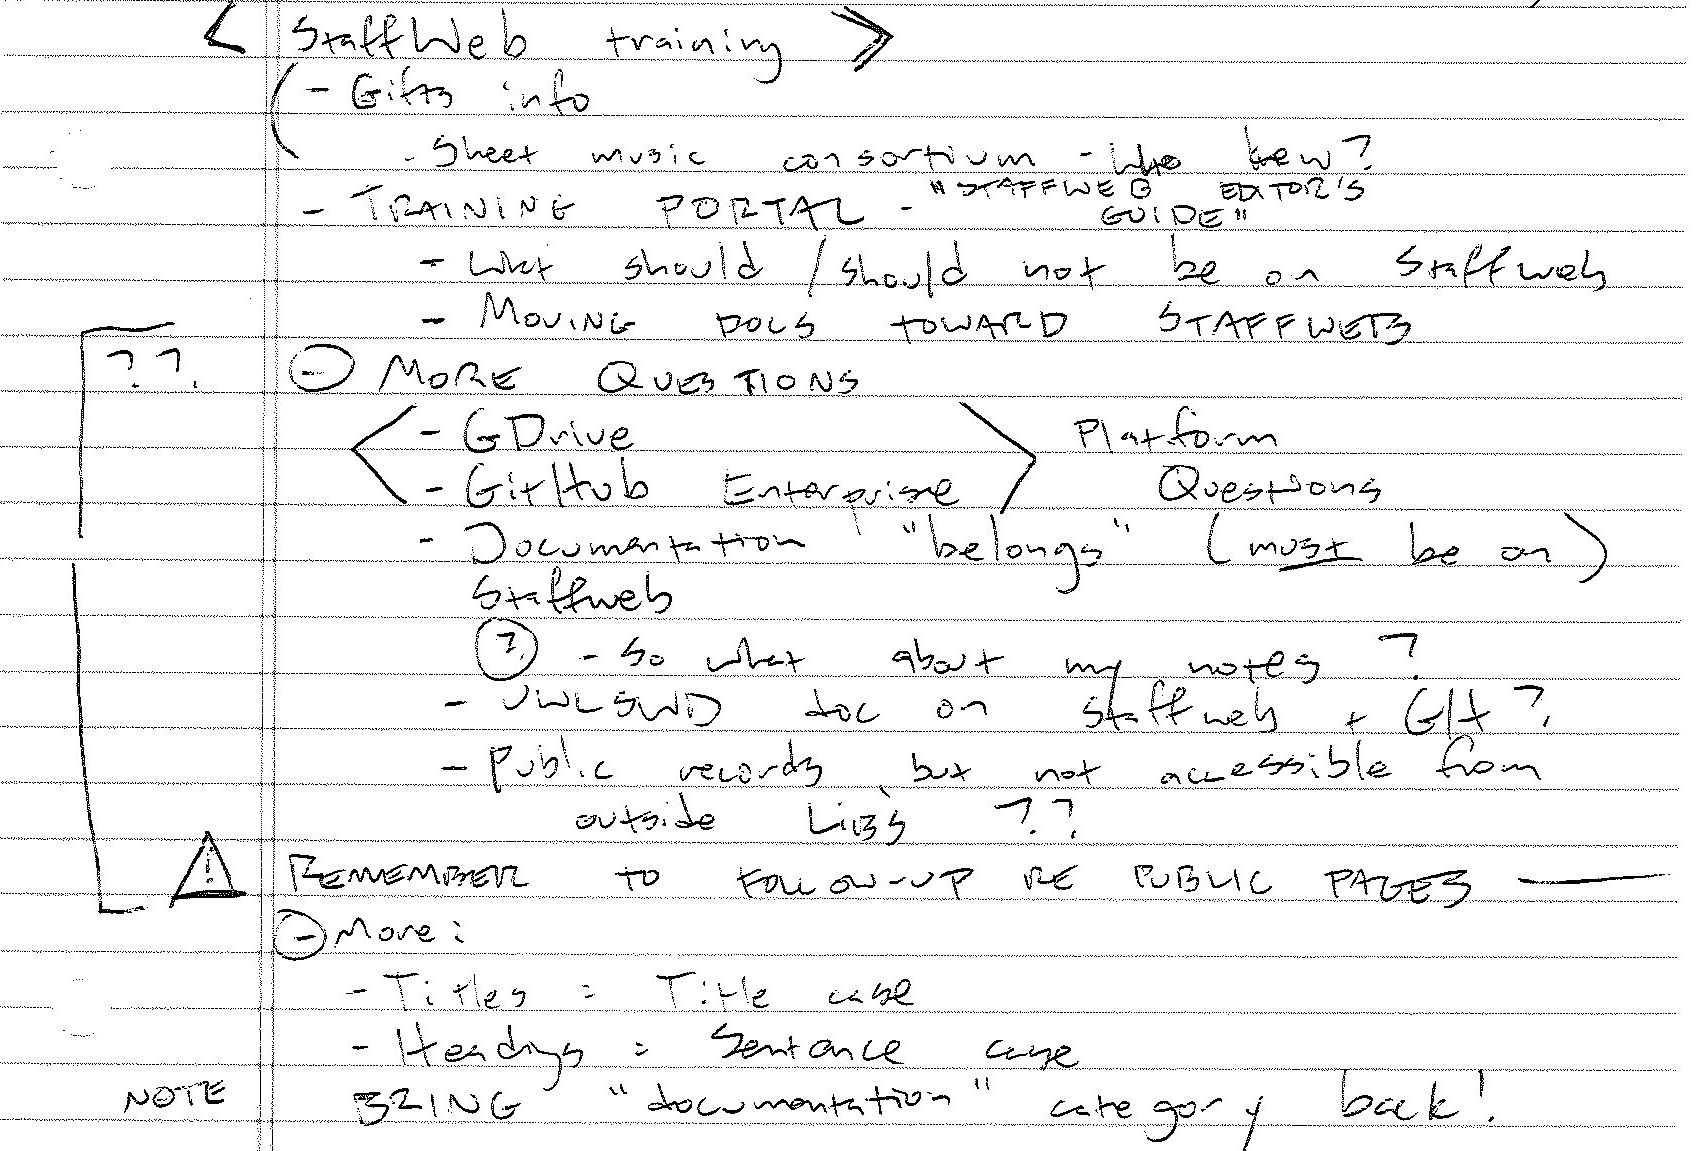 < StaffWeb training >>
- Gifts info
- Sheet music consortium - who knew?
- TRAINING PORTAL - "STAFFWEB EDITOR'S GUIDE"
- What should / should not be on Staffweb
- MOVING DOCS TOWARD STAFFWEB
?? - MORE QUESTIONS
- GDrive > Platform
- GitHub Enterprise Questions
- Documentation "belongs" (must be on)
Staffweb
? - So what about my notes?
- UWLSWD doc on staffweb + Git?
- Public records but not accessible from
outside Libs ??
! REMEMBER TO FOLLOW-UP RE PUBLIC PAGES —
- More:
- Titles = Title case
- Headings = Sentence case
NOTE BRING "documentation" category back!